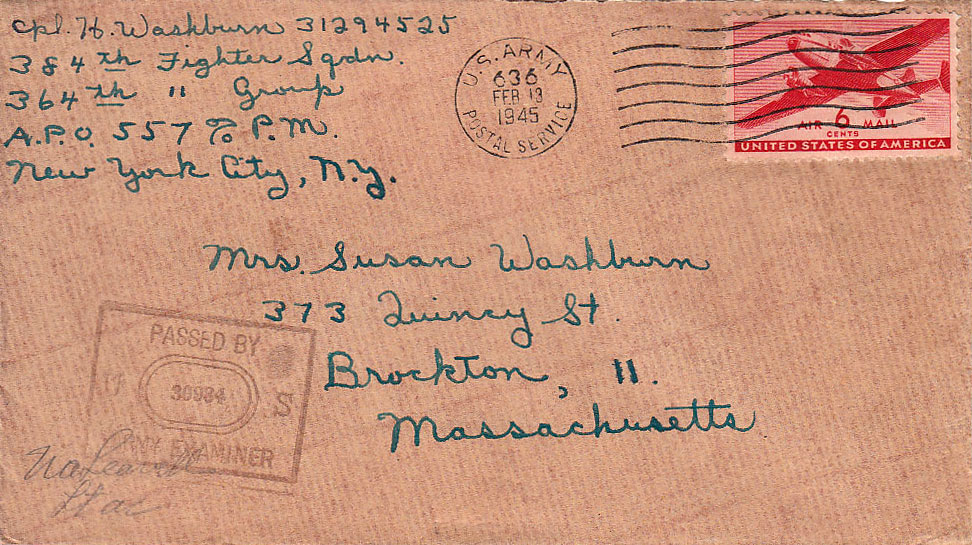 Cpl. H. Washburn 31294525
384th Fighter Sqdn.
364th " Group
A.P.O. 557 c/o P.M.
New York City, N.Y.
U.S. ARMY
636
FEB 13
1945
POSTAL SERVICE
AIR 6 MAIL
CENTS
UNITED STATES OF AMERICA
Mrs. Susan Washburn
373 Quincy St.
Brockton, 11.
Massachusetts
PASSED BY
U 30984 S
ARMY EXAMINER